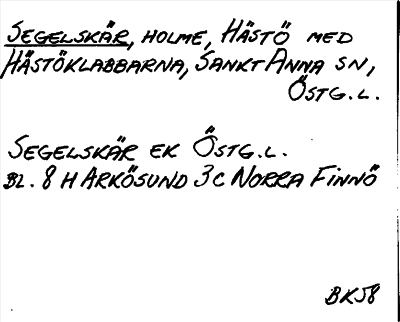 SEGELSKÄR, HOLME, HÄSTÖ MED
HÄSTÖKLABBARNA, SANKT ANNA SN,
ÖSTG.L.
SEGELSKÄR EK ÖSTG.L.
BL. 8 H ARKÖSUND 3C NORRA FINNÖ
BK58